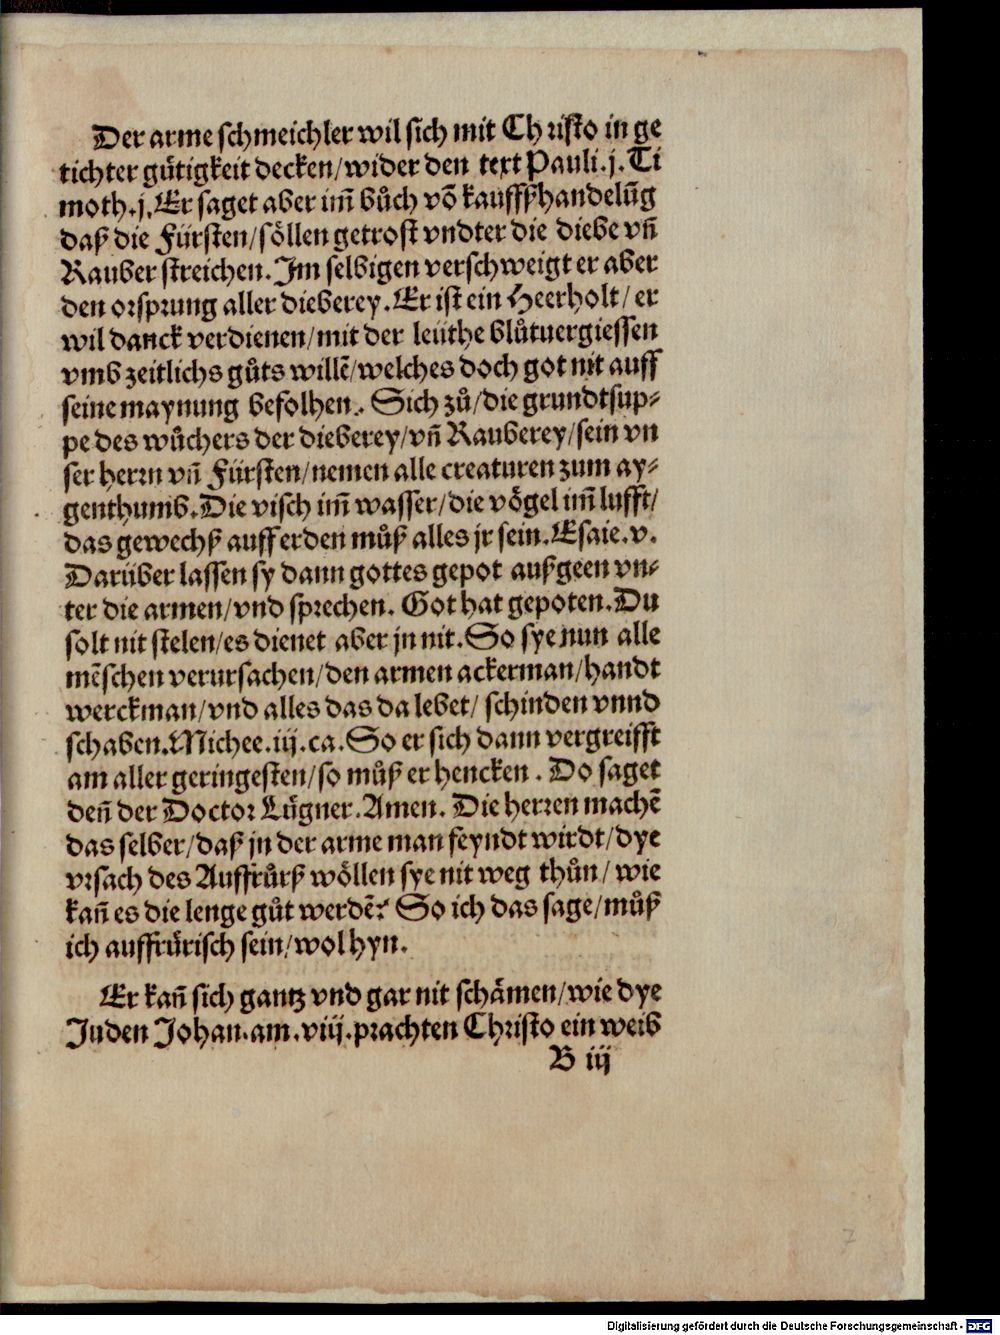 Der arme schmeichler wil sich mit Christo in ge
tichter gůtigkeit decken/wider den text Pauli.j.Ti
moth.j.Er saget aber im̄ bůch võ kauffßhandelũg
daß die Fürsten/söllen getrost vndter die diebe vn̄
Rauber streichen.Im selbigen verschweigt er aber
den orsprung aller dieberey.Er ist ein Heerholt/er
wil danck verdienen/mit der leüthe blůtuergiessen
vmb zeitlichs gůts willẽ/welches doch got nit auff
seine maynung befolhen. Sich zů/die grundtsup-
pe des wůchers der dieberey/vn̄ Rauberey/sein vn
ser herrn vn̄ Fürsten/nemen alle creaturen zum ay-
genthumb.Die visch im̄ wasser/die vögel im̄ lufft/
das gewechß auff erden můß alles jr sein.Esaie.v.
Darüber lassen sy dann gottes gepot außgeen vn-
ter die armen/vnd sprechen. Got hat gepoten.Du
solt nit stelen/es dienet aber jn nit.So sye nun alle
mẽschen verursachen/den armen ackerman/handt
werckman/vnd alles das da lebet/ schinden vnnd
schaben.Michee.iij.ca.So er sich dann vergreifft
am aller geringesten/so můß er hencken. Do saget
den̄ der Doctor Lügner.Amen. Die herren machẽ
das selber/daß jn der arme man feyndt wirdt/dye
vrsach des Auffrůrß wöllen sye nit weg thůn/ wie
kan̄ es die lenge gůt werdẽ? So ich das sage/můß
ich auffrürisch sein/wol hyn.
Er kan̄ sich gantz vnd gar nit schämen/wie dye
Juden Johan.am.viij.prachten Christo ein weib
B iij
7
Digitalisierung gefördert durch die Deutsche Forschungsgemeinschaft - DFG